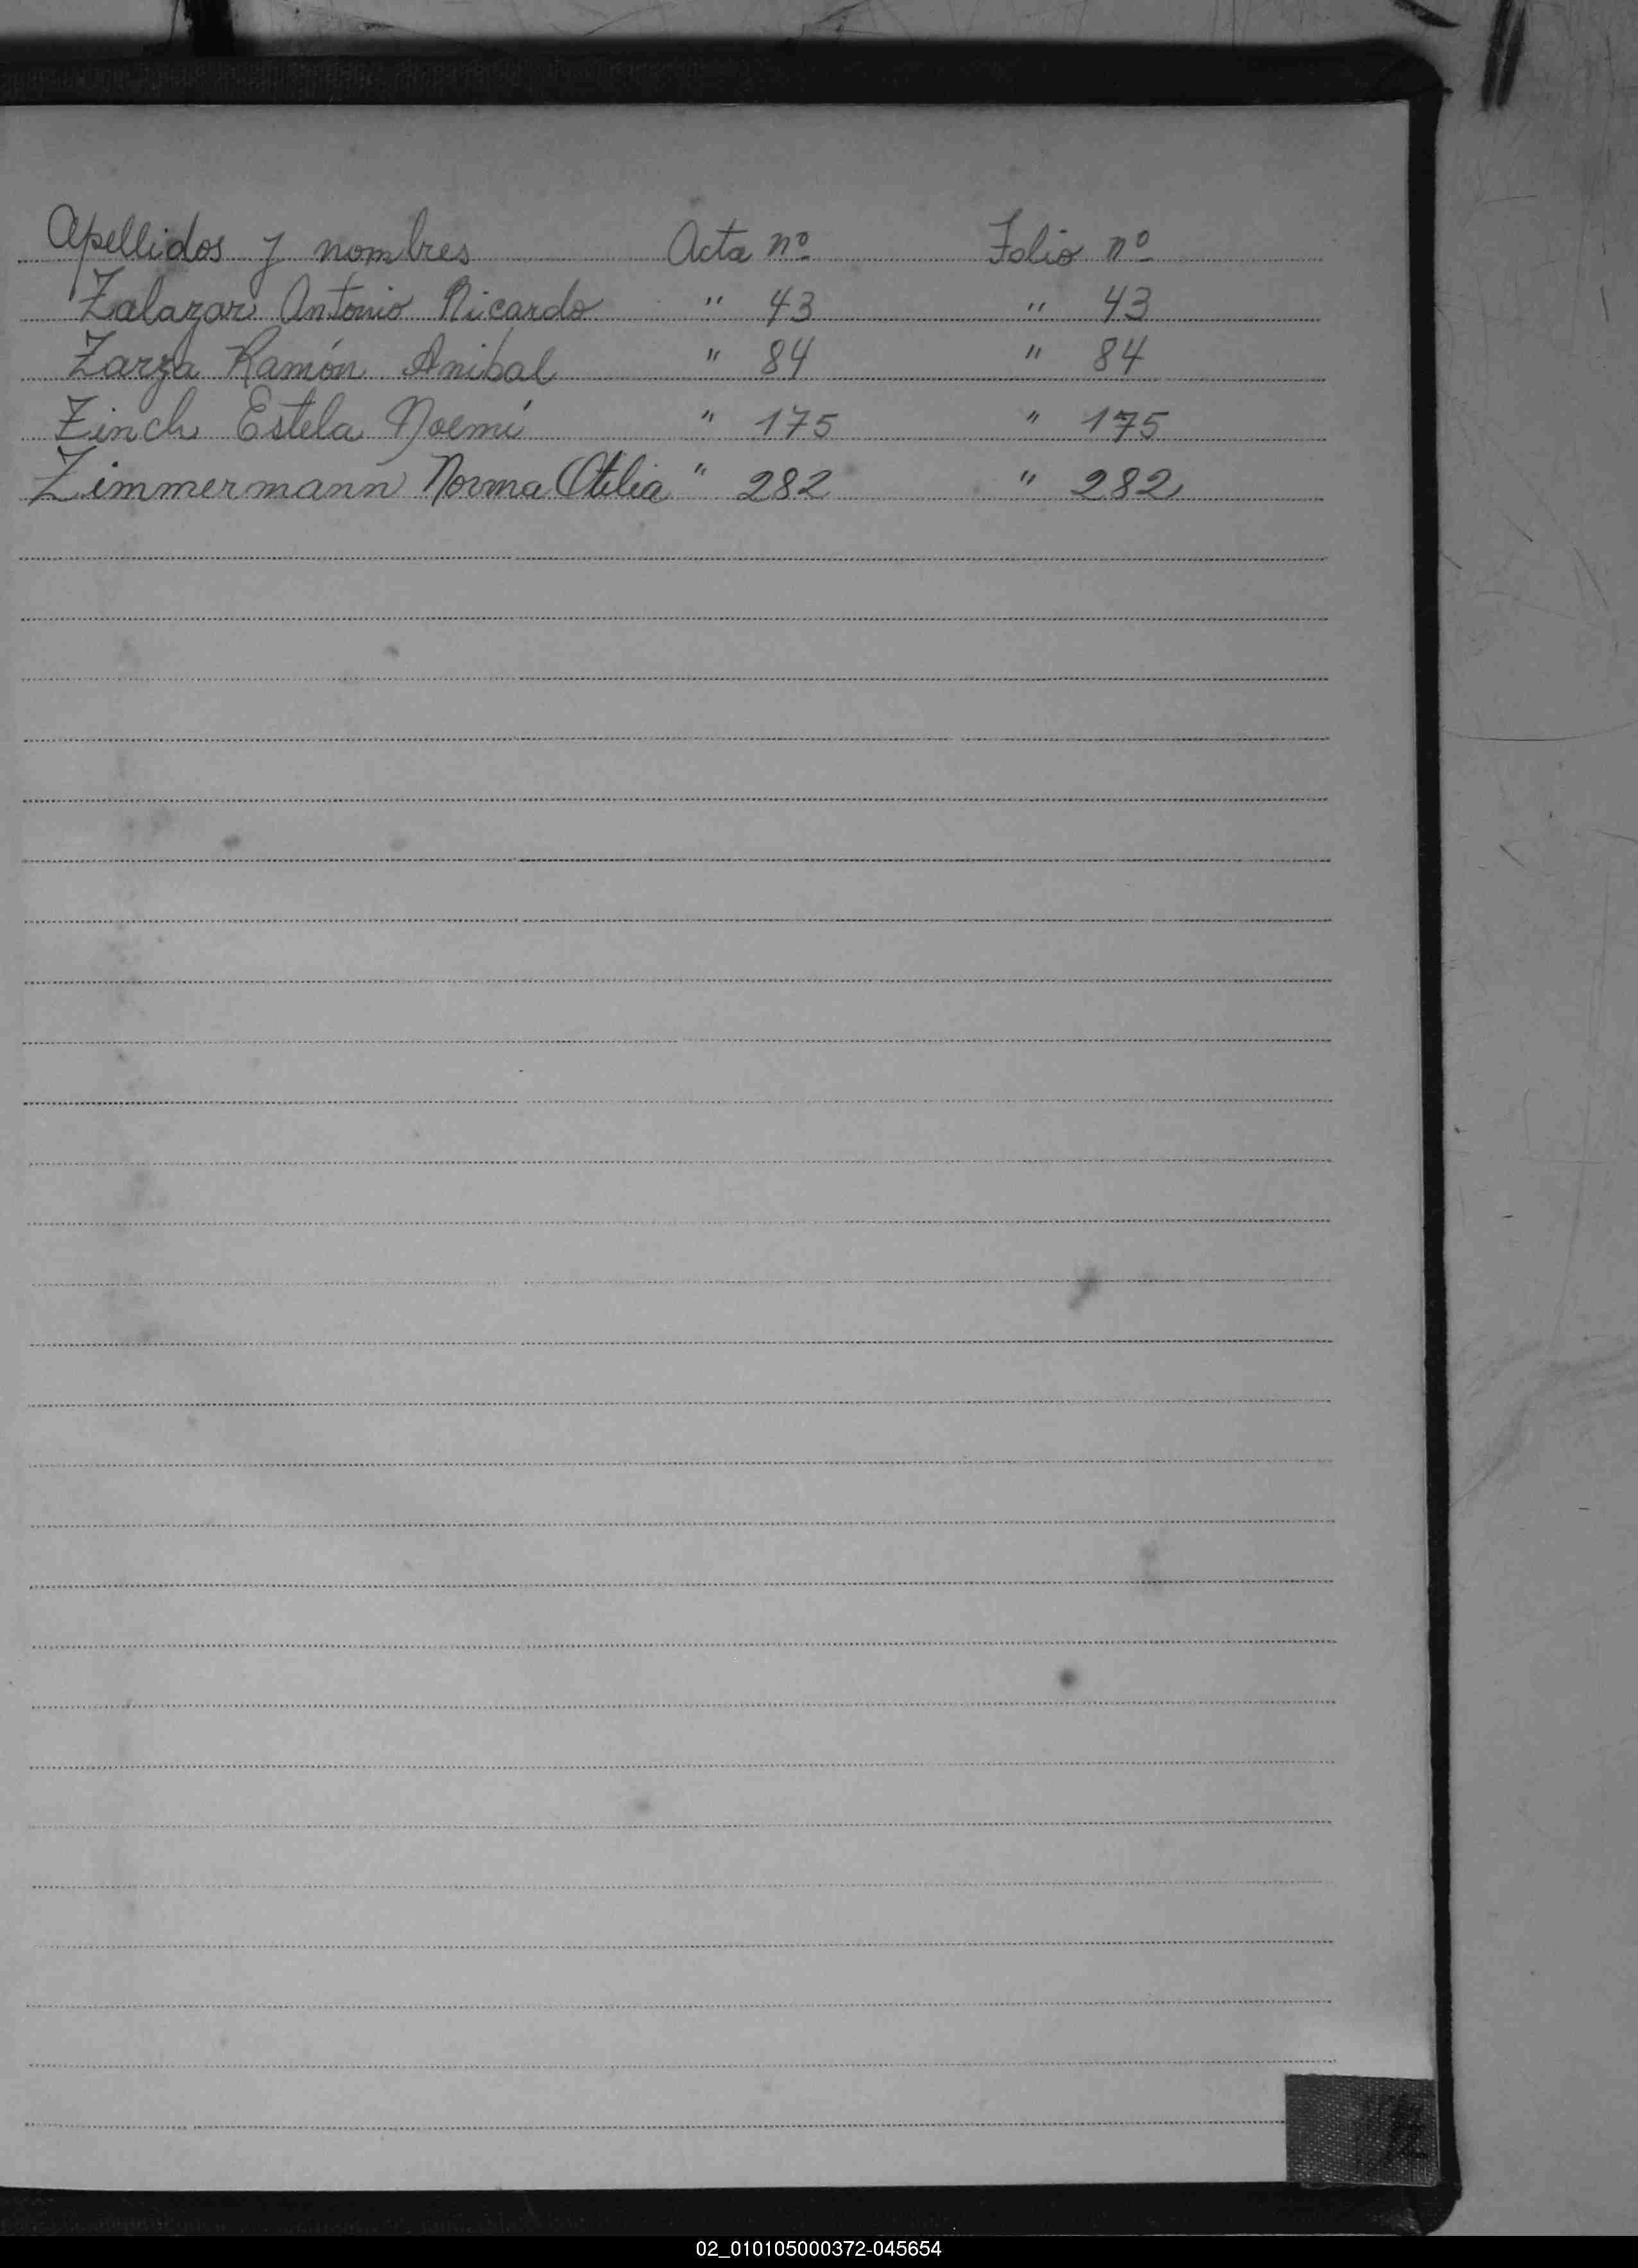 Apellidos y nombres Acta nº Folio nº
Zalazar Antonio Ricardo " 43 " 43
Zarza Ramón Anibal " 84 " 84
Zinch Estela Noemí " 175 " 175
Zimmermann Norma Otilia " 282 " 282
Z
02_010105000372-045654